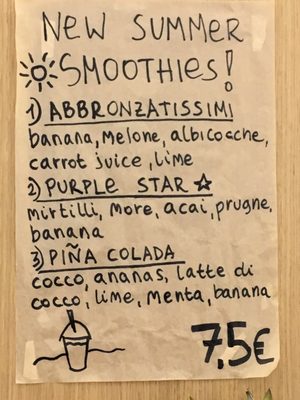 NEW SUMMER
SMOOTHIES!
1) ABBRONZATISSIMI
banana, melone, albicocche,
carrot juice, lime
2) PURPLE STAR ☆
mirtilli, more, acai, prugne,
banana
3) PIÑA COLADA
cocco, ananas, latte di
cocco, lime, menta, banana
7,5€